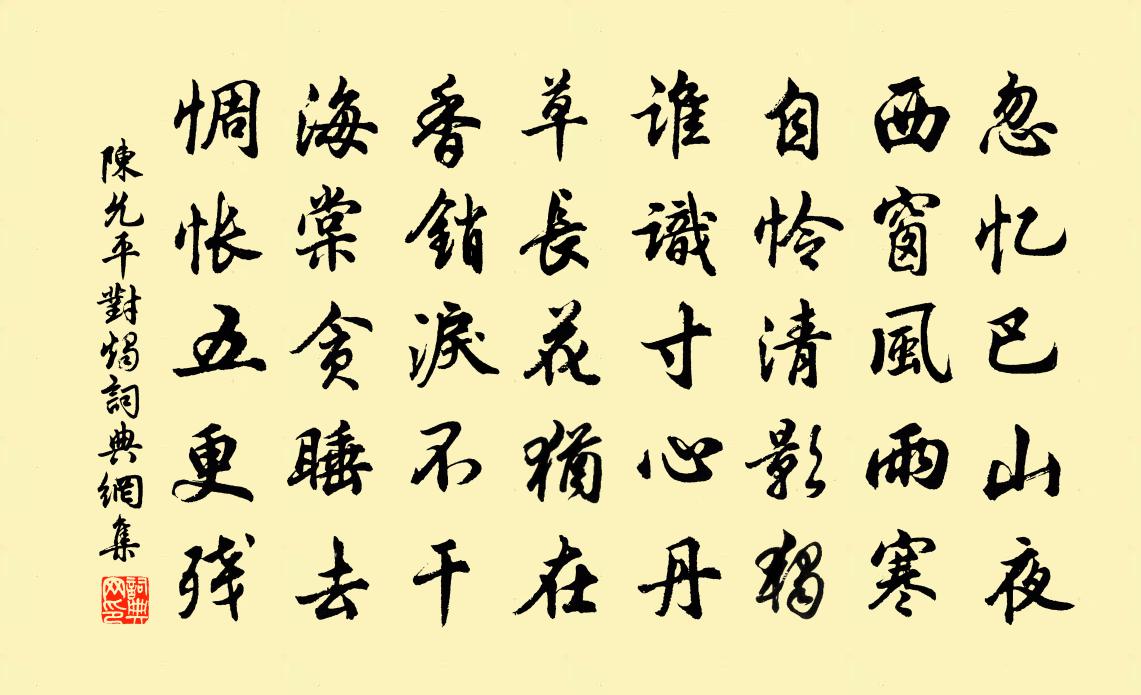 忽忆巴山夜
西窗風雨寒
自怜清影獨
誰識寸心丹
草長花猶在
香銷淚不干
海棠贪睡去
惆怅五更残
陳允平對燭詞典網集
詞典网印